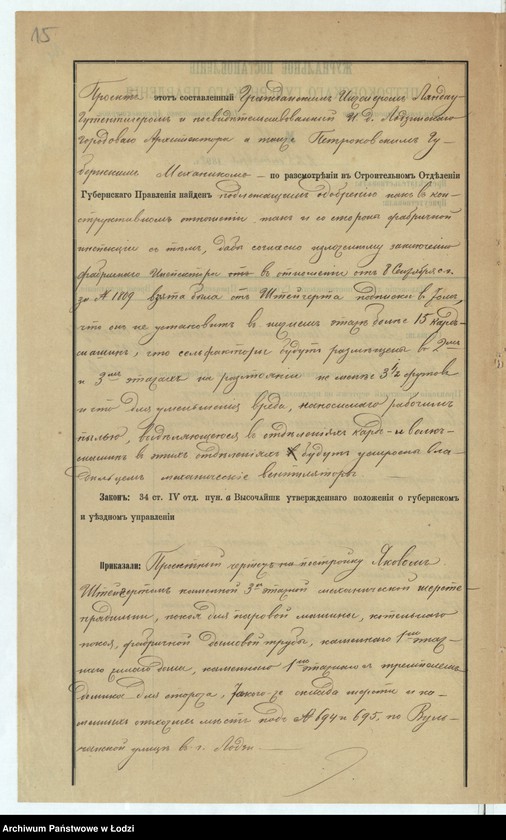 15
Проектъ этотъ составленный Гражданскимъ Инженеромъ Ландау-
Гутентегеромъ и освидѣтельствованный И. д. Лодзинскаго
городоваго Архитектора а также Петроковскимъ Гу-
бернскимъ Механикомъ — по разсмотрѣніи въ Строительномъ Отдѣленіи
Губернскаго Правленія найденъ подлежащимъ одобренію какъ въ кон-
структивномъ отношеніи такъ и со стороны фабричной
инспекціи съ тѣмъ, дабы согласно изложенному заключенію
фабричнаго Инспектора въ отношеніи отъ 8 Сентября с.г.
за № 1809 взята была отъ Штейгерта подписка въ томъ,
что онъ не установитъ въ нижнемъ этажѣ болѣе 15 кардъ-
машинъ, что сельфакторы будутъ размѣщены в 2мъ
и 3мъ этажахъ на разстояніи не менѣе 3 1/2 футовъ
и что для уменьшенія вреда, наносимаго рабочимъ
пылью, выдѣляющеюся въ отдѣленіяхъ кардъ- и волкъ-
машинъ въ этихъ отдѣленіяхъ будутъ устроены вла-
дѣльцемъ механическіе вентиляторы. —
Законъ: 34 ст. IV отд. пун. а Высочайше утвержденнаго положенія о губернскомъ
и уѣздномъ управленіи
Приказали: Проектный чертежъ на постройку Яковомъ
Штейгертомъ каменной 3хъ этажной механической шерсто-
прядильни, покоя для паровой машины, котельнаго
покоя, фабричной дымовой трубы, каменнаго 1но этаж-
наго жилаго дома, каменнаго 1но этажнаго съ тремпелемъ
домика для сторожа, такого-же склада шерсти и ка-
менныхъ отхожихъ мѣстъ подъ № 694 и 695, по Вуль-
чанской улицѣ въ г. Лодзи. —
Archiwum Państwowe w Łodzi